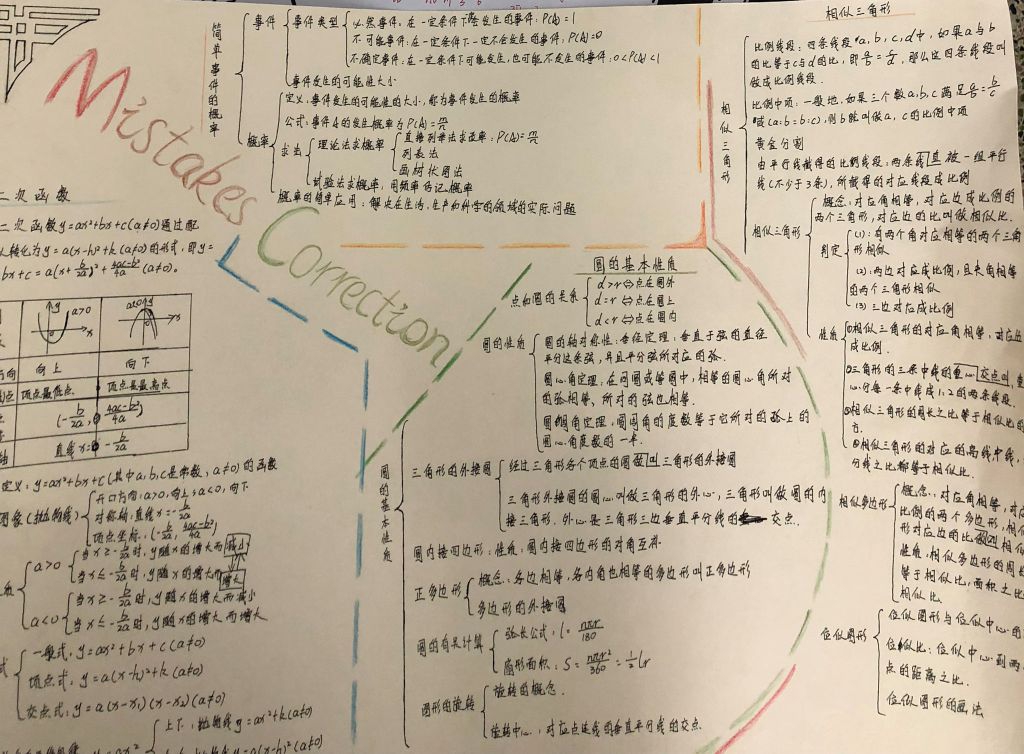 Mistakes
Correction
简单事件的概率
事件
事件类型
必然事件：在一定条件下必会发生的事件：P(A)=1
不可能事件：在一定条件下一定不会发生的事件：P(A)=0
不确定事件：在一定条件下可能发生，也可能不发生的事件：0<P(A)<1
事件发生的可能性大小
概率
定义：事件发生的可能性的大小，称为事件发生的概率
公式：事件A的发生概率为P(A)=m/n
求法
理论法求概率
直接列举法求概率：P(A)=m/n
列表法
画树状图法
试验法求概率，用频率估记概率
概率的简单应用：解决在生活、生产和科学的领域的实际问题
二次函数
二次函数y=ax²+bx+c(a≠0)通过配
转化为y=a(x-h)²+k(a≠0)的形式，即y=
bx+c=a(x+b/2a)²+4ac-b²/4a(a≠0)。
a>0
a<0
向上
向下
顶点最低点
顶点是最高点
(-b/2a，4ac-b²/4a)
直线x=-b/2a
定义：y=ax²+bx+c(其中a,b,c是常数，a≠0)的函数
图象(抛物线)
开口方向：a>0，向上；a<0，向下
对称轴：直线x=-b/2a
顶点坐标：(-b/2a，4ac-b²/4a)
a>0
当x≥-b/2a时，y随x的增大而减小
当x≤-b/2a时，y随x的增大而增大
a<0
当x≥-b/2a时，y随x的增大而减小
当x≤-b/2a时，y随x的增大而增大
一般式：y=ax²+bx+c(a≠0)
顶点式：y=a(x-h)²+k(a≠0)
交点式：y=a(x-x₁)(x-x₂)(a≠0)
上下：抛物线y=ax²+k(a≠0)
y=a(x-h)²(a≠0)
圆的基本性质
圆的基本性质
点和圆的关系
d>r⇔点在圆外
d=r⇔点在圆上
d<r⇔点在圆内
圆的性质
圆的轴对称性：垂径定理：垂直于弦的直径
平分这条弦，并且平分弦所对应的弧。
圆心角定理：在同圆或等圆中，相等的圆心角所对
的弧相等，所对的弦也相等。
圆周角定理，圆周角的度数等于它所对的弧上的
圆心角度数的一半。
三角形的外接圆
经过三角形各个顶点的圆做叫三角形的外接圆
三角形外接圆的圆心叫做三角形的外心，三角形叫做圆的内
接三角形．外心是三角形三边垂直平分线的交点．
圆内接四边形：性质：圆内接四边形的对角互补
正多边形
概念：各边相等，各内角也相等的多边形叫正多边形
多边形的外接圆
圆的有关计算
弧长公式：l=nπr/180
扇形面积：S=nπr²/360=1/2lr
图形的旋转
旋转的概念．
旋转中心：对应点连线的垂直平分线的交点．
相似三角形
相似三角形
比例线段：四条线段a,b,c,d中，如果a与b
的比等于c与d的比，即a/b=c/d，那么这四条线段叫
做成比例线段．
比例中项：一般地，如果三个数a,b,c满足a/b=b/c
或(a:b=b:c)，则b就叫做a，c的比例中项
黄金分割
由平行线截得的比例线段：两条线直被一组平行
线(不少于3条)，所截得的对应线段成比例
相似三角形
概念：对应角相等，对应边成比例的
两个三角形，对应边的比叫做相似比．
判定
(1)：有两个角对应相等的两个三角
形相似
(2)：两边对应成比例，且夹角相等
的两个三角形相似
(3)三边对应成比例
性质
①相似三角形的对应角相等，对应边
成比例．
②三角形的三条中线的重心交点叫，重
心分每一条中线成1:2的两条线段．
③相似三角形的周长之比等于相似比的
方．
④相似三角形的对应的高线中线，
分线之比都等于相似比．
相似多边形
概念：对应角相等，对应
比例的两个多边形，相似
形对应边的比做叫相似
性质：相似多边形的周长
等于相似比，面积之比
相似比
位似图形
位似图形与位似中心的
位似比：位似中心到两
点的距离之比．
位似图形的画法